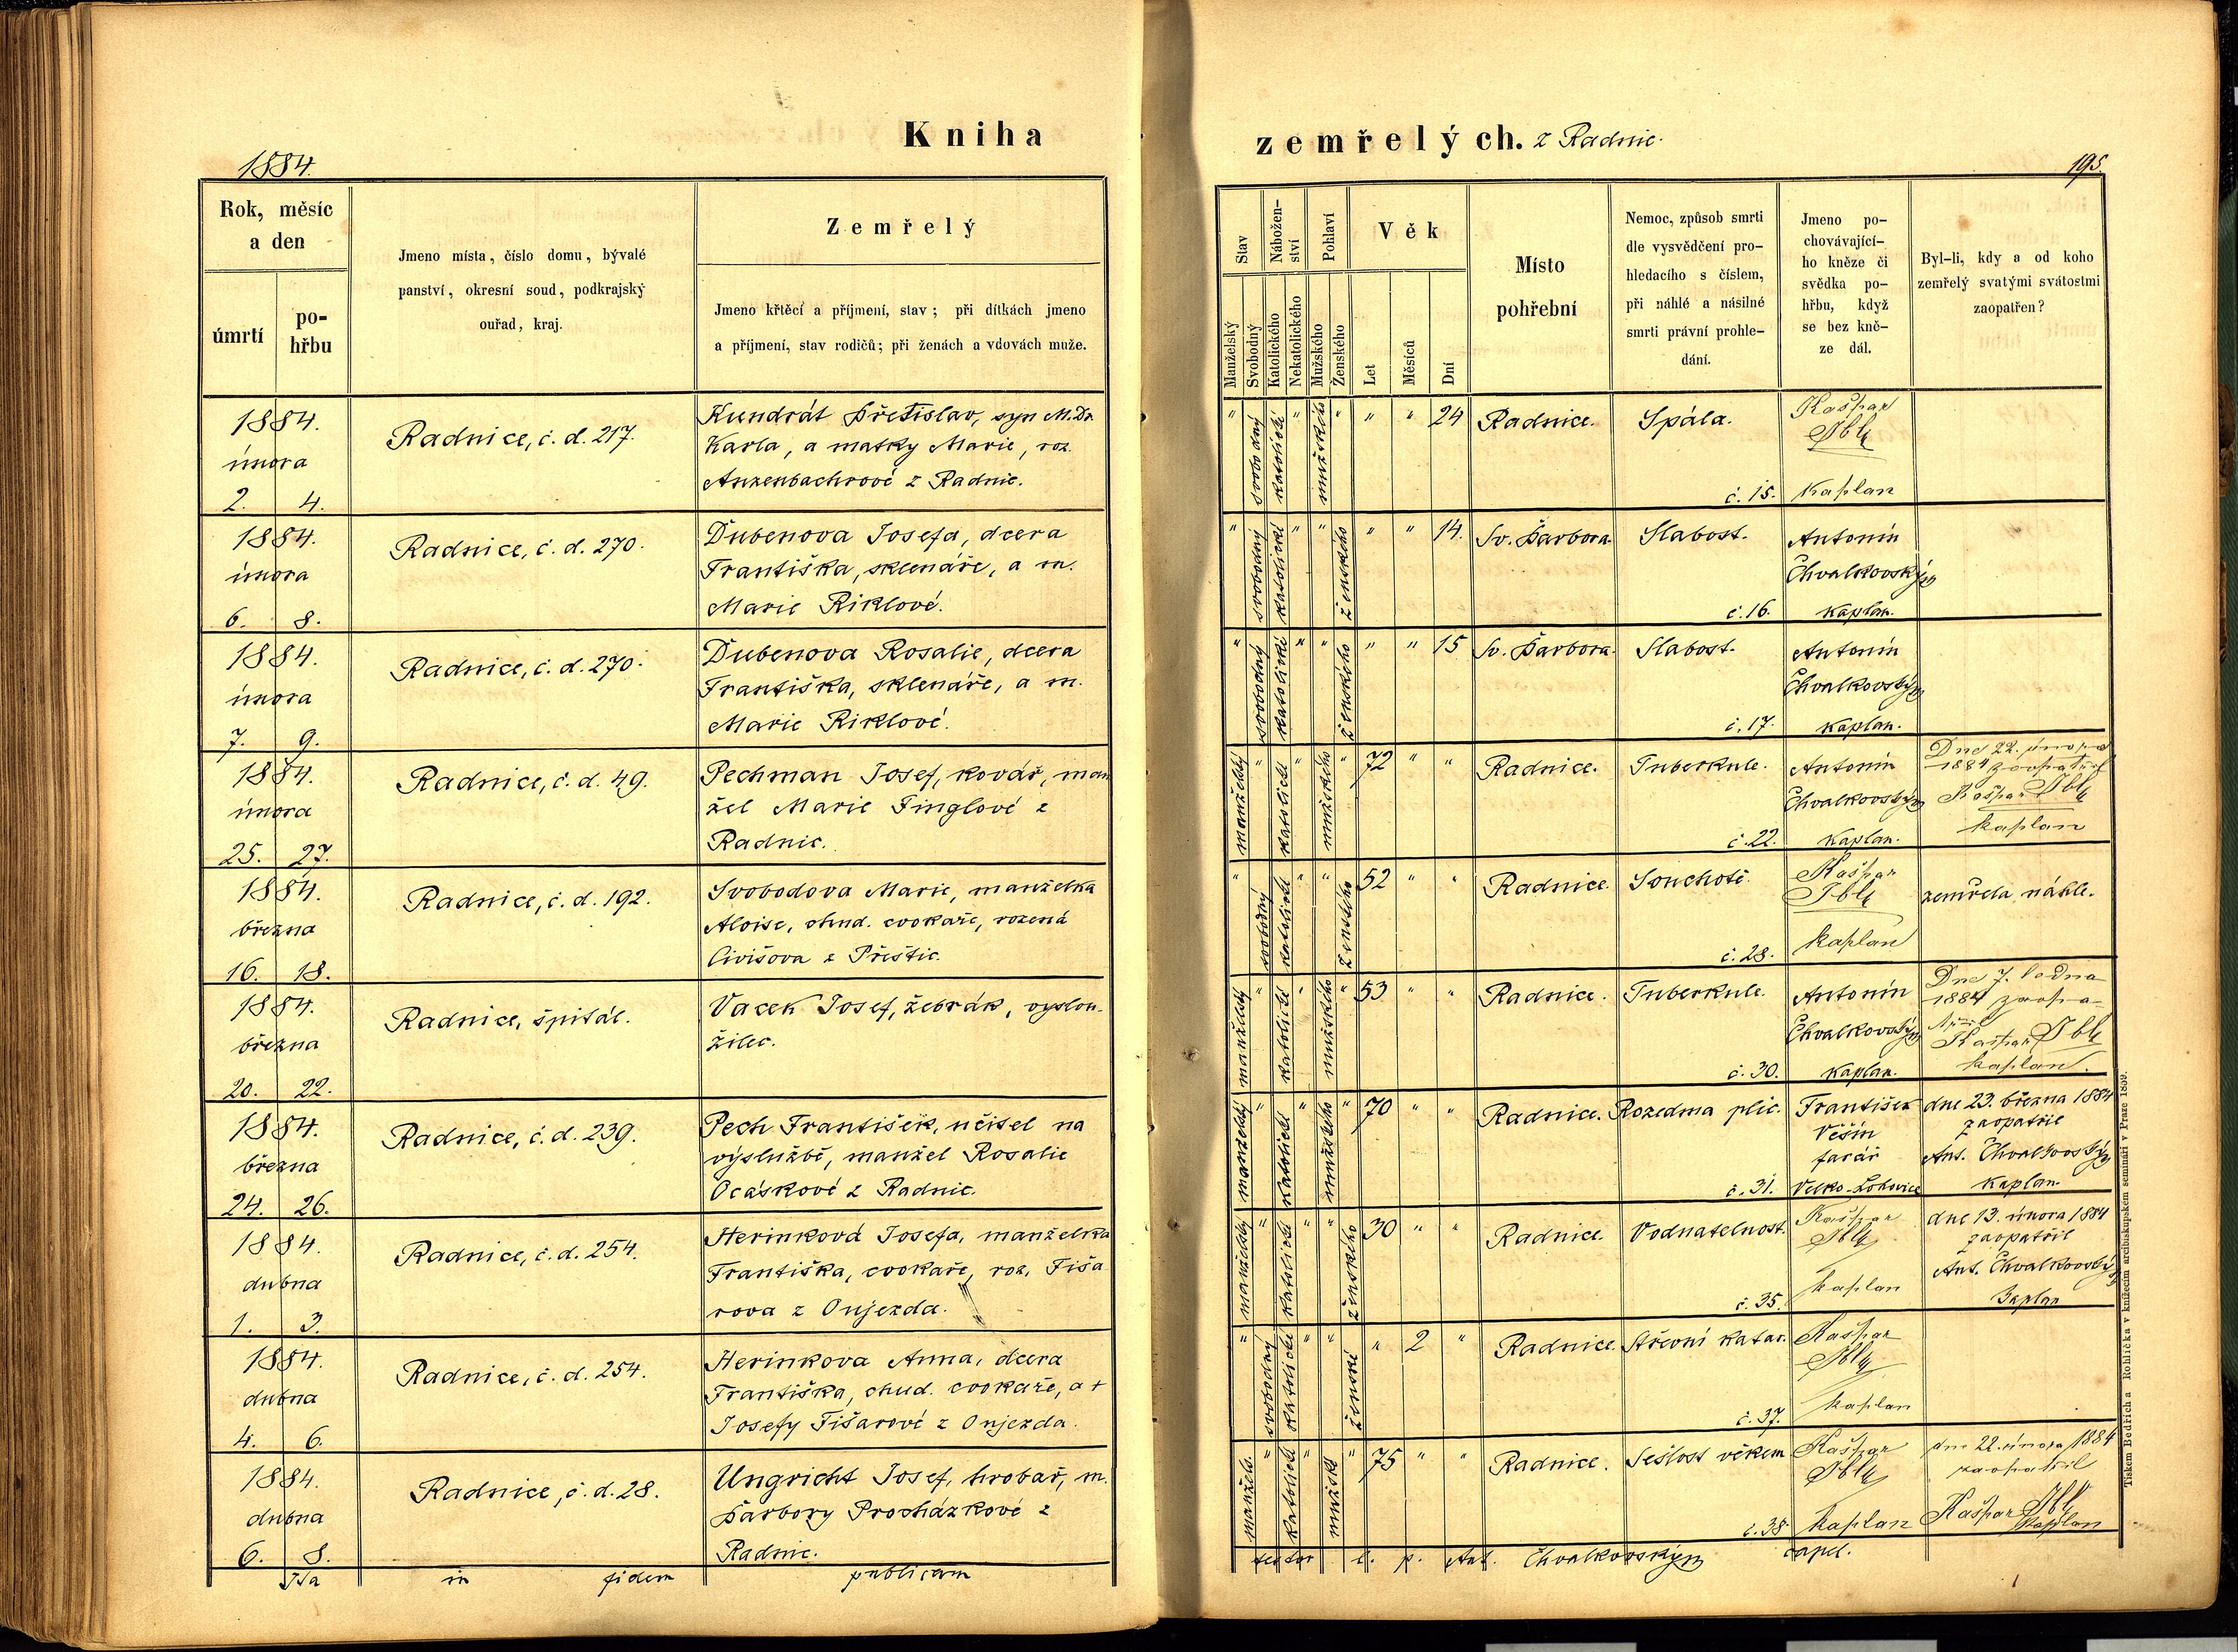 Kniha
zemřelých. z Radnic.
1884.
195.
Rok, měsíc
a den
úmrtí
po-
hřbu
Jmeno místa, číslo domu, bývalé
panství, okresní soud, podkrajský
ouřad, kraj.
Zemřelý
Jmeno křtěcí a příjmení, stav; při dítkách jmeno
a příjmení, stav rodičů; při ženách a vdovách muže.
Stav
Manželský
Svobodný
Nábožen-
ství
Katolického
Nekatolického
Pohlaví
Mužského
Ženského
Věk
Let
Měsíců
Dní
Místo
pohřební
Nemoc, způsob smrti
dle vysvědčení pro-
hledacího s číslem,
při náhlé a násilné
smrti právní prohle-
dání.
Jmeno po-
chovávající-
ho kněze či
svědka po-
hřbu, když
se bez kně-
ze dál.
Byl-li, kdy a od koho
zemřelý svatými svátostmi
zaopatřen?
1884.
února
2. 4.
Radnice, č. d. 217.
Kundrát Břetislav, syn M.Dr.
Karla, a matky Marie, roz.
Anzenbachrové z Radnic.
" svobodný katolické " mužského " " " 24
Radnice.
Spála.
č. 15.
Kašpar
Ibl
kaplan
1884.
února
6. 8.
Radnice, č. d. 270.
Dubenova Josefa, dcera
Františka, sklenáře, a m.
Marie Riklové.
" svobodný katolické " " ženského " " 14.
Sv. Barbora
Slabost.
č. 16.
Antonín
Chvalkovský
kaplan.
1884.
února
7. 9.
Radnice, č. d. 270.
Dubenova Rosalie, dcera
Františka, sklenáře, a m.
Marie Riklové.
" svobodný katolické " " ženského " " 15
Sv. Barbora.
Slabost.
č. 17.
Antonín
Chvalkovský
kaplan.
1884.
února
25. 27.
Radnice, č. d. 49.
Pechman Josef, kovář, man
žel Marie Finglové z
Radnic.
manželský " katolické " mužského " 72 " "
Radnice.
Tuberkule.
č. 22.
Antonín
Chvalkovský
kaplan.
Dne 22. února
1884 zaopatřil
Kašpar Ibl
kaplan
1884.
března
16. 18.
Radnice, č. d. 192.
Svobodova Marie, manželka
Aloise, chud. cvokaře, rozená
Civišova z Přeštic.
" svobodný katolické " " ženského 52 " "
Radnice.
Souchotě.
č. 28.
Kašpar
Ibl
kaplan
zemřela náhle.
1884.
března
20. 22.
Radnice, špitál.
Vacek Josef, žebrák, vyslou-
žilec.
manželský " katolické " mužského " 53 " "
Radnice.
Tuberkule.
č. 30.
Antonín
Chvalkovský
kaplan.
Dne 7. ledna
1884 zaopa-
třil
Kašpar Ibl
kaplan.
1884.
března
24. 26.
Radnice, č. d. 239.
Pech František, učitel na
výslužbě, manžel Rosalie
Ocáskové z Radnic.
manželský " katolické " mužského " 70 " "
Radnice.
Rozedma plic.
č. 31.
František
Věšín
farář
Velko-Lohovice
dne 23. března 1884
zaopatřil
Ant. Chvalkovský
kaplan.
1884.
dubna
1. 3.
Radnice, č. d. 254.
Herinková Josefa, manželka
Františka, cvokaře, roz. Fiša
rova z Oujezda.
manželský " katolické " " ženského 30 " "
Radnice.
Vodnatelnost.
č. 35.
Kašpar
Ibl
kaplan
dne 13. února 1884
zaopatřil
Ant. Chvalkovský
kaplan
1884.
dubna
4. 6.
Radnice, č. d. 254.
Herinkova Anna, dcera
Františka, chud. cvokaře, a +
Josefy Fišarové z Oujezda.
" svobodný katolické " " ženské " 2 "
Radnice.
Střevní katar.
č. 37.
Kašpar
Ibl
kaplan
1884.
dubna
6. 8.
Radnice, č. d. 28.
Ungricht Josef, hrobař, m.
Barbory Procházkové z
Radnic.
manžels. " katolické " mužské " 75 " "
Radnice.
Sešlost věkem
č. 38.
Kašpar
Ibl
kaplan
dne 22. února 1884
zaopatřil
Kašpar Ibl
kaplan
Ita in fidem publicam
testor l. p. Ant. Chvalkovský capel.
Tiskem Bedřicha Rohlíčka v knížecím arcibiskupském semináři v Praze 1859.